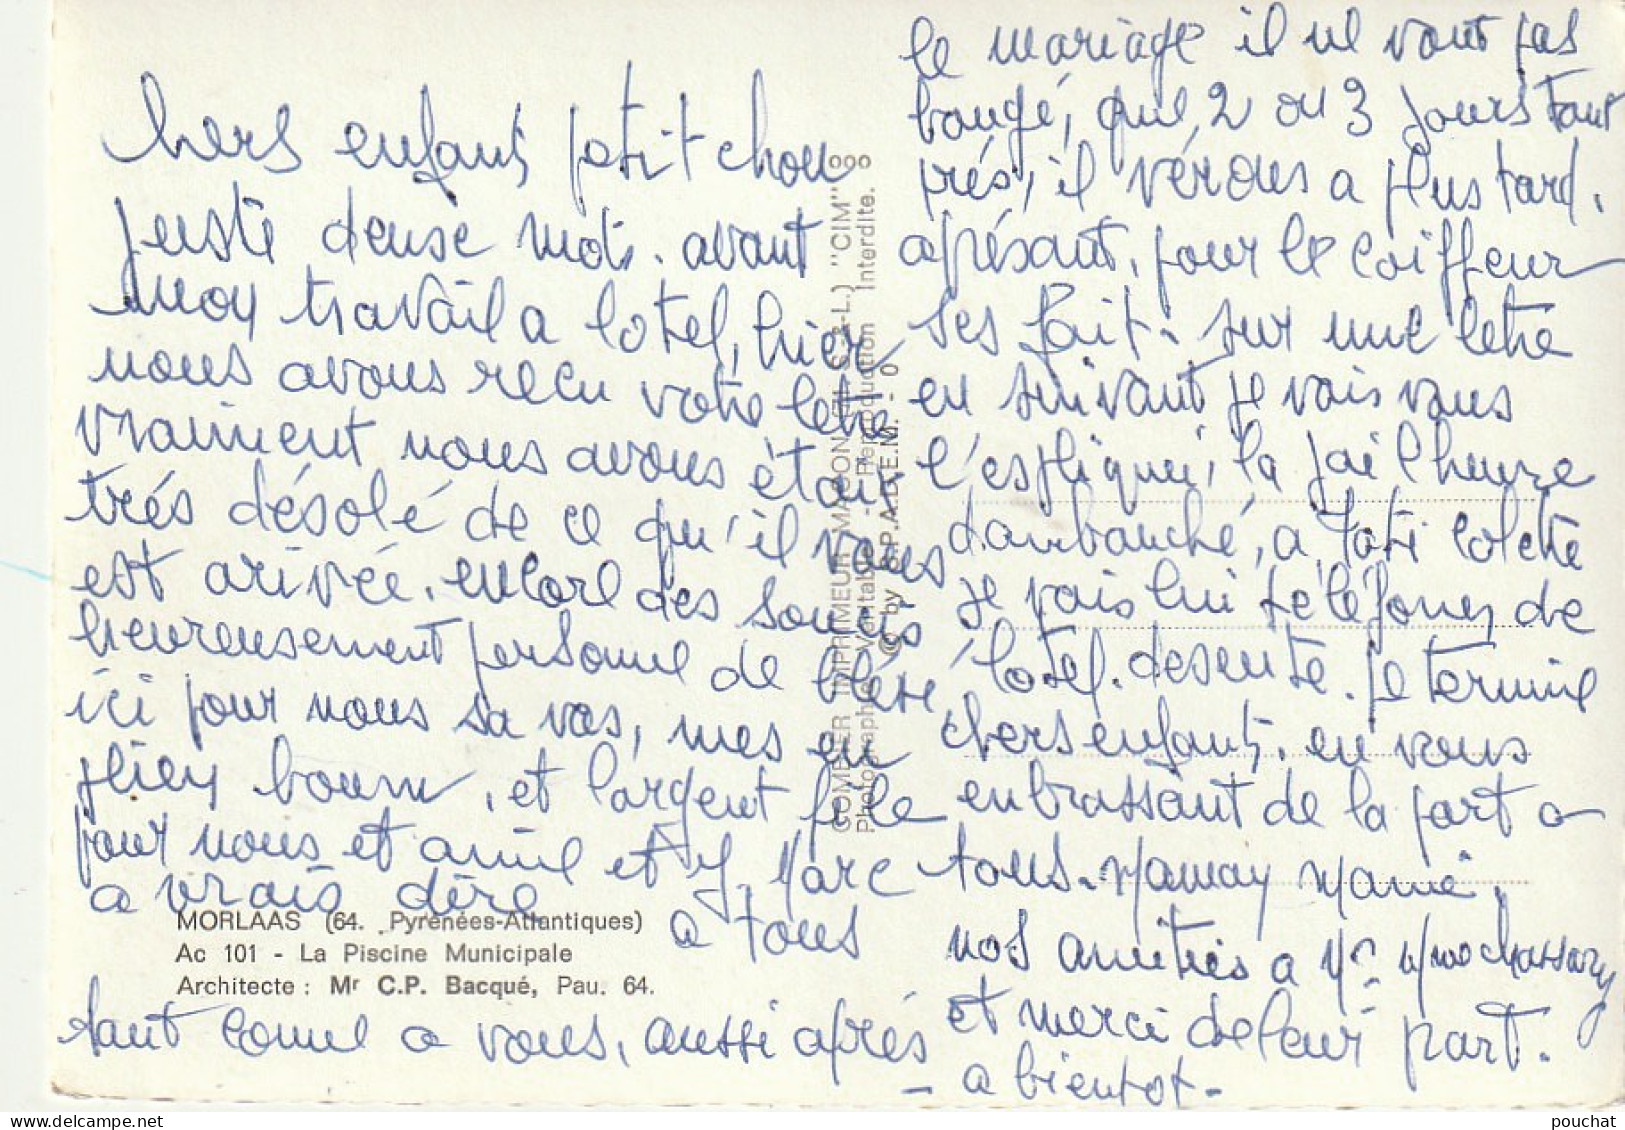 chers enfants petit chou
juste deuse mots. avant
mon travail a lotel, hier
nous avons recu votre letre
vraiment nous avons étair
trés désolé de ce qu'il vous
est arivée. encore des soucis
heureusement personne de bléssé,
ici pour nous sa vas, mes en
plien bourre, et l'argent file
pour nous et anne et J. Marc
a vrais dére
a tous
MORLAAS (64. Pyrénées-Atlantiques)
Ac 101 - La Piscine Municipale
Architecte : Mr C.P. Bacqué, Pau. 64.
tant comme a vous, aussi aprés
COMBIER IMPRIMEUR MACON (S.-&-L.) "CIM"
Photographie Véritable - Reproduction Interdite.
© by S.P.A.D.E.M. - 0
le mariage il ne vont pas
bougé, que 2 ou 3 jours tout
prés, il vérons a plus tard.
aprésant, pour le coiffeur
ses fait. sur une letre
en suivant je vais vous
l'espliquei, la j'ai l'heure
d'anbauché, a Tati Colette
je vais lui téléfoner de
l'otel. desente. je termine
chers enfants. en vous
enbrassant de la part a
tous. Maman Mamie,
nos amitiés a Mr Mme Chassary
et merci de leur part.
- a bientot -
pouchat